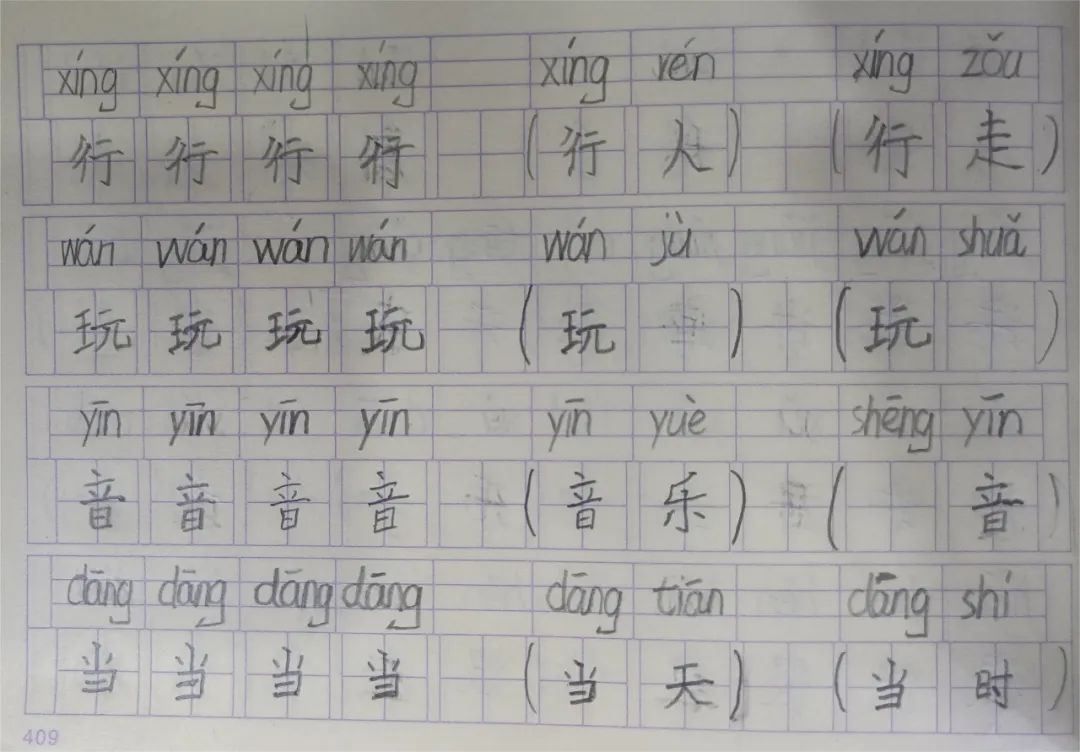 xíng xíng xíng xíng xíng rén xíng zǒu
行 行 行 行 (行 人) (行 走)
wán wán wán wán wán jù wán shuǎ
玩 玩 玩 玩 (玩 ) (玩 )
yīn yīn yīn yīn yīn yuè shēng yīn
音 音 音 音 (音 乐) ( 音)
dāng dāng dāng dāng dāng tiān dāng shí
当 当 当 当 (当 天) (当 时)
409